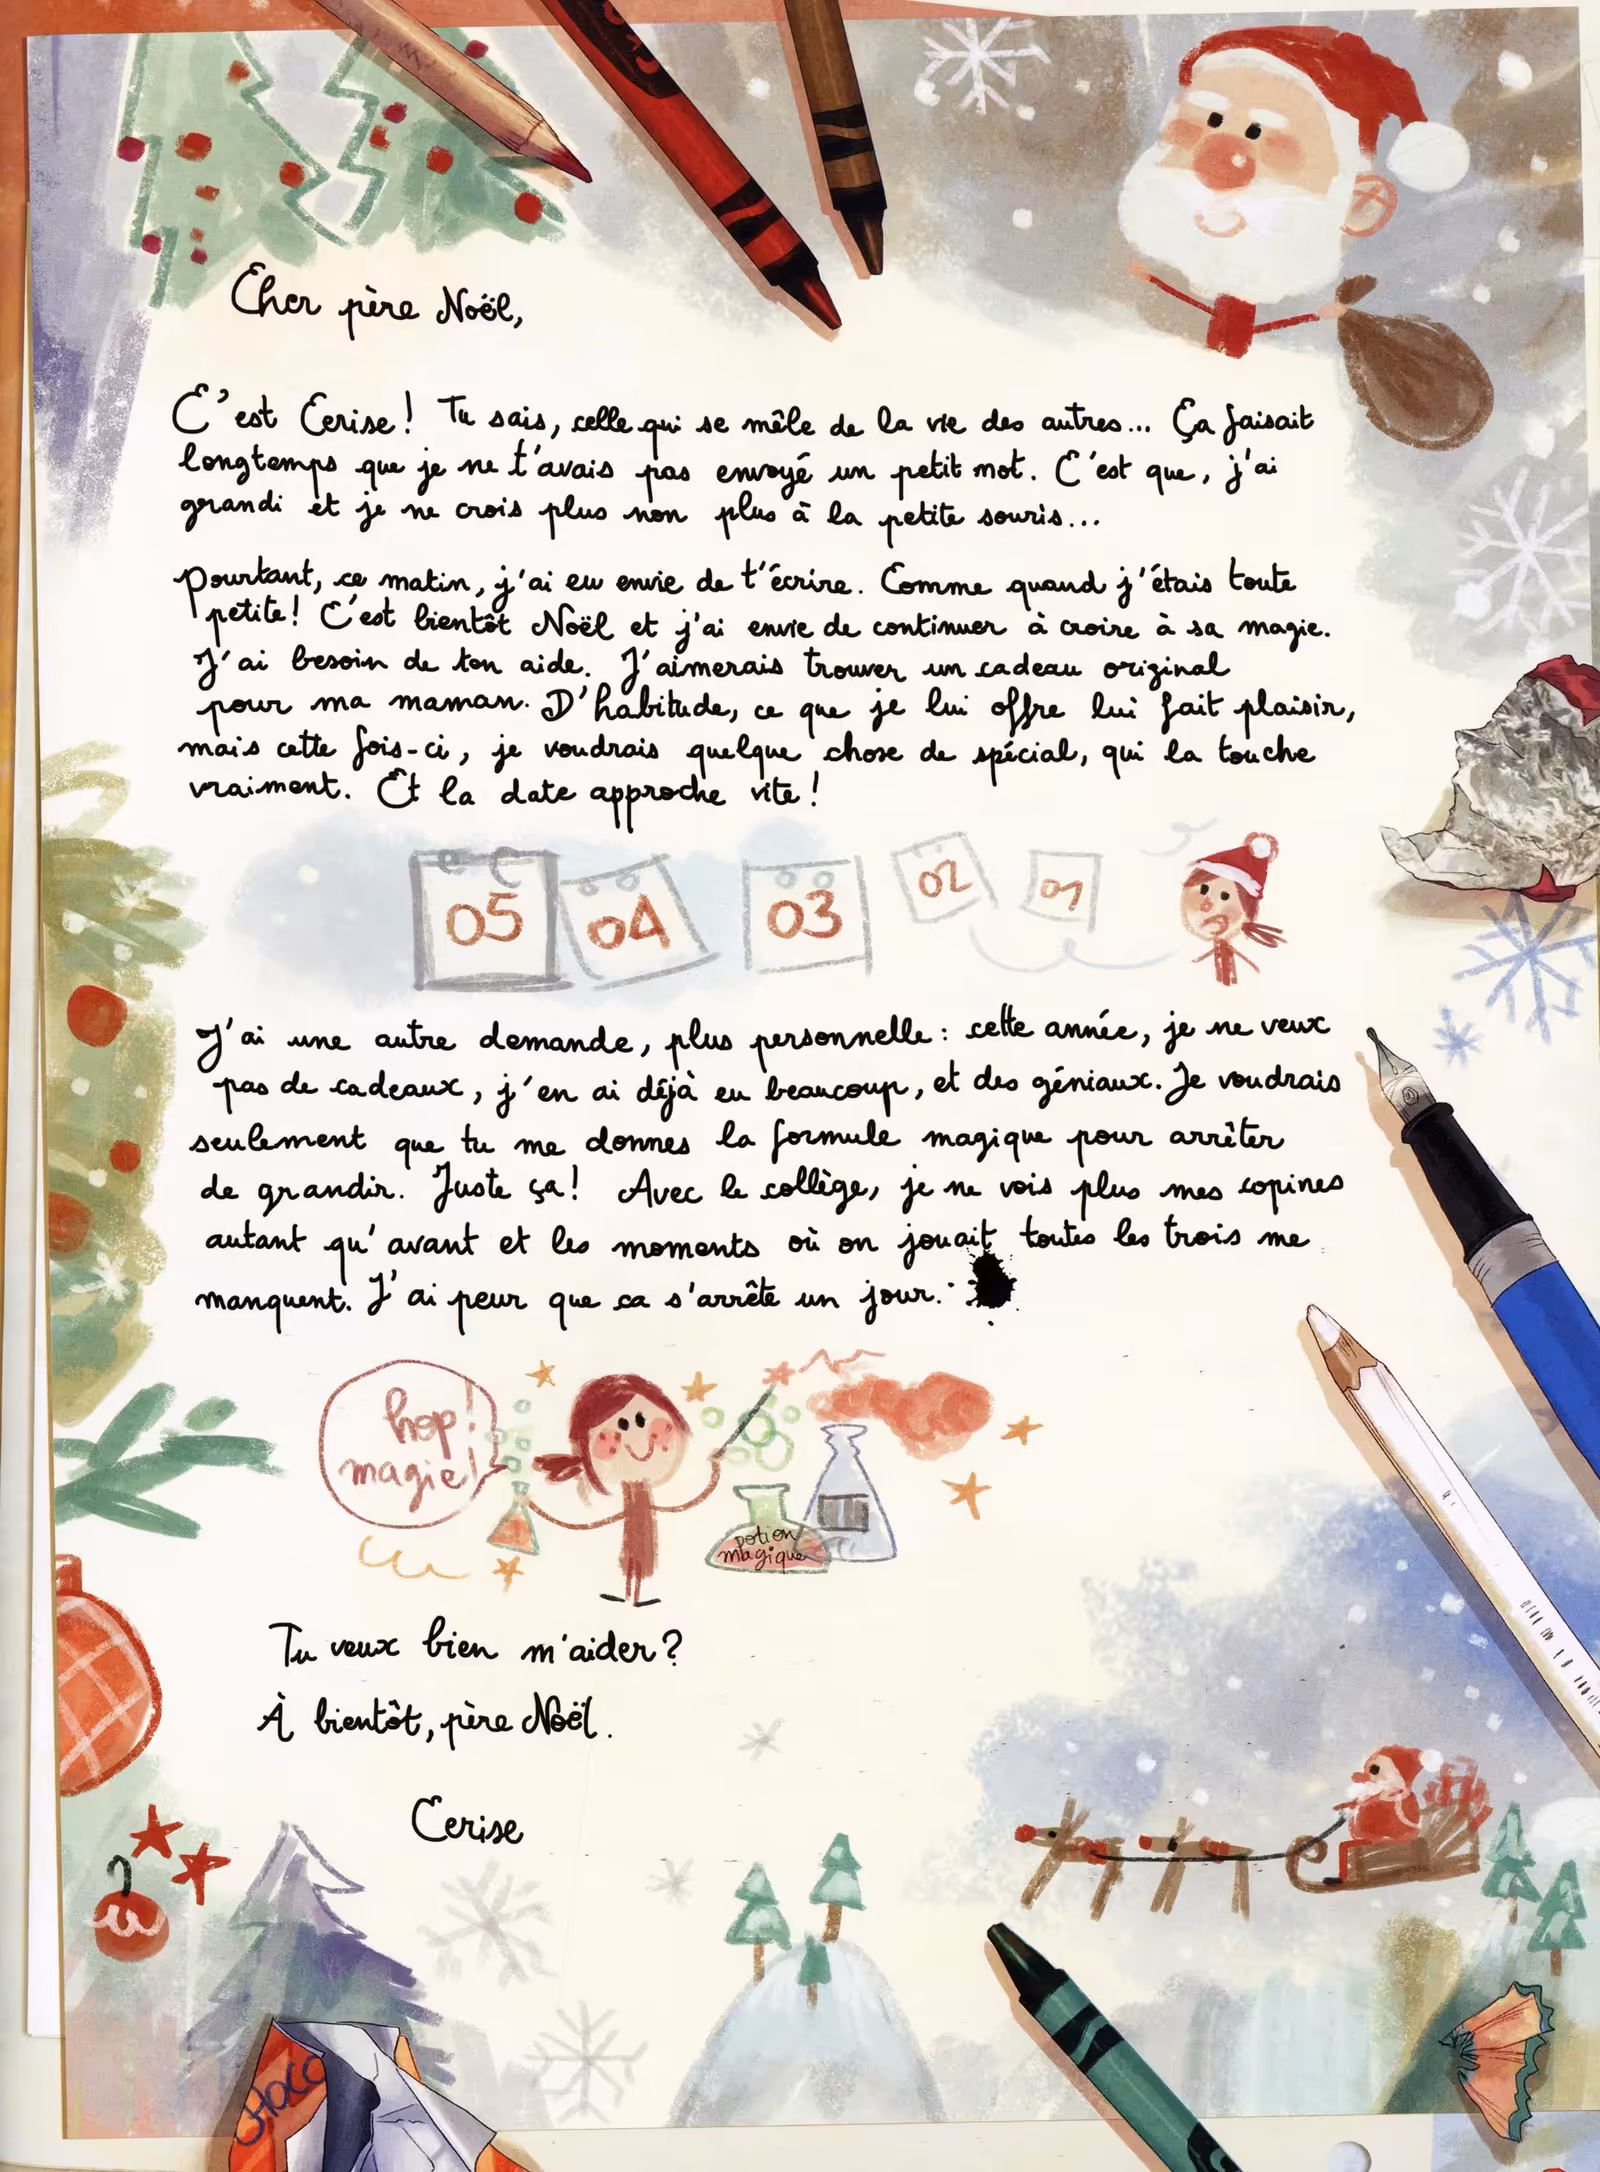 Cher père Noël,
C'est Cerise! Tu sais, celle qui se mêle de la vie des autres... Ça faisait
longtemps que je ne t'avais pas envoyé un petit mot. C'est que, j'ai
grandi et je ne crois plus non plus à la petite souris...
Pourtant, ce matin, j'ai eu envie de t'écrire. Comme quand j'étais toute
petite! C'est bientôt Noël et j'ai envie de continuer à croire à sa magie.
J'ai besoin de ton aide. J'aimerais trouver un cadeau original
pour ma maman. D'habitude, ce que je lui offre lui fait plaisir,
mais cette fois-ci, je voudrais quelque chose de spécial, qui la touche
vraiment. Et la date approche vite!
05 04 03 02 01
J'ai une autre demande, plus personnelle: cette année, je ne veux
pas de cadeaux, j'en ai déjà eu beaucoup, et des géniaux. Je voudrais
seulement que tu me donnes la formule magique pour arrêter
de grandir. Juste ça! Avec le collège, je ne vois plus mes copines
autant qu'avant et les moments où on jouait toutes les trois me
manquent. J'ai peur que ca s'arrête un jour.
hop!
magie!
potion
magique
Tu veux bien m'aider?
À bientôt, père Noël.
Cerise
CHOCO